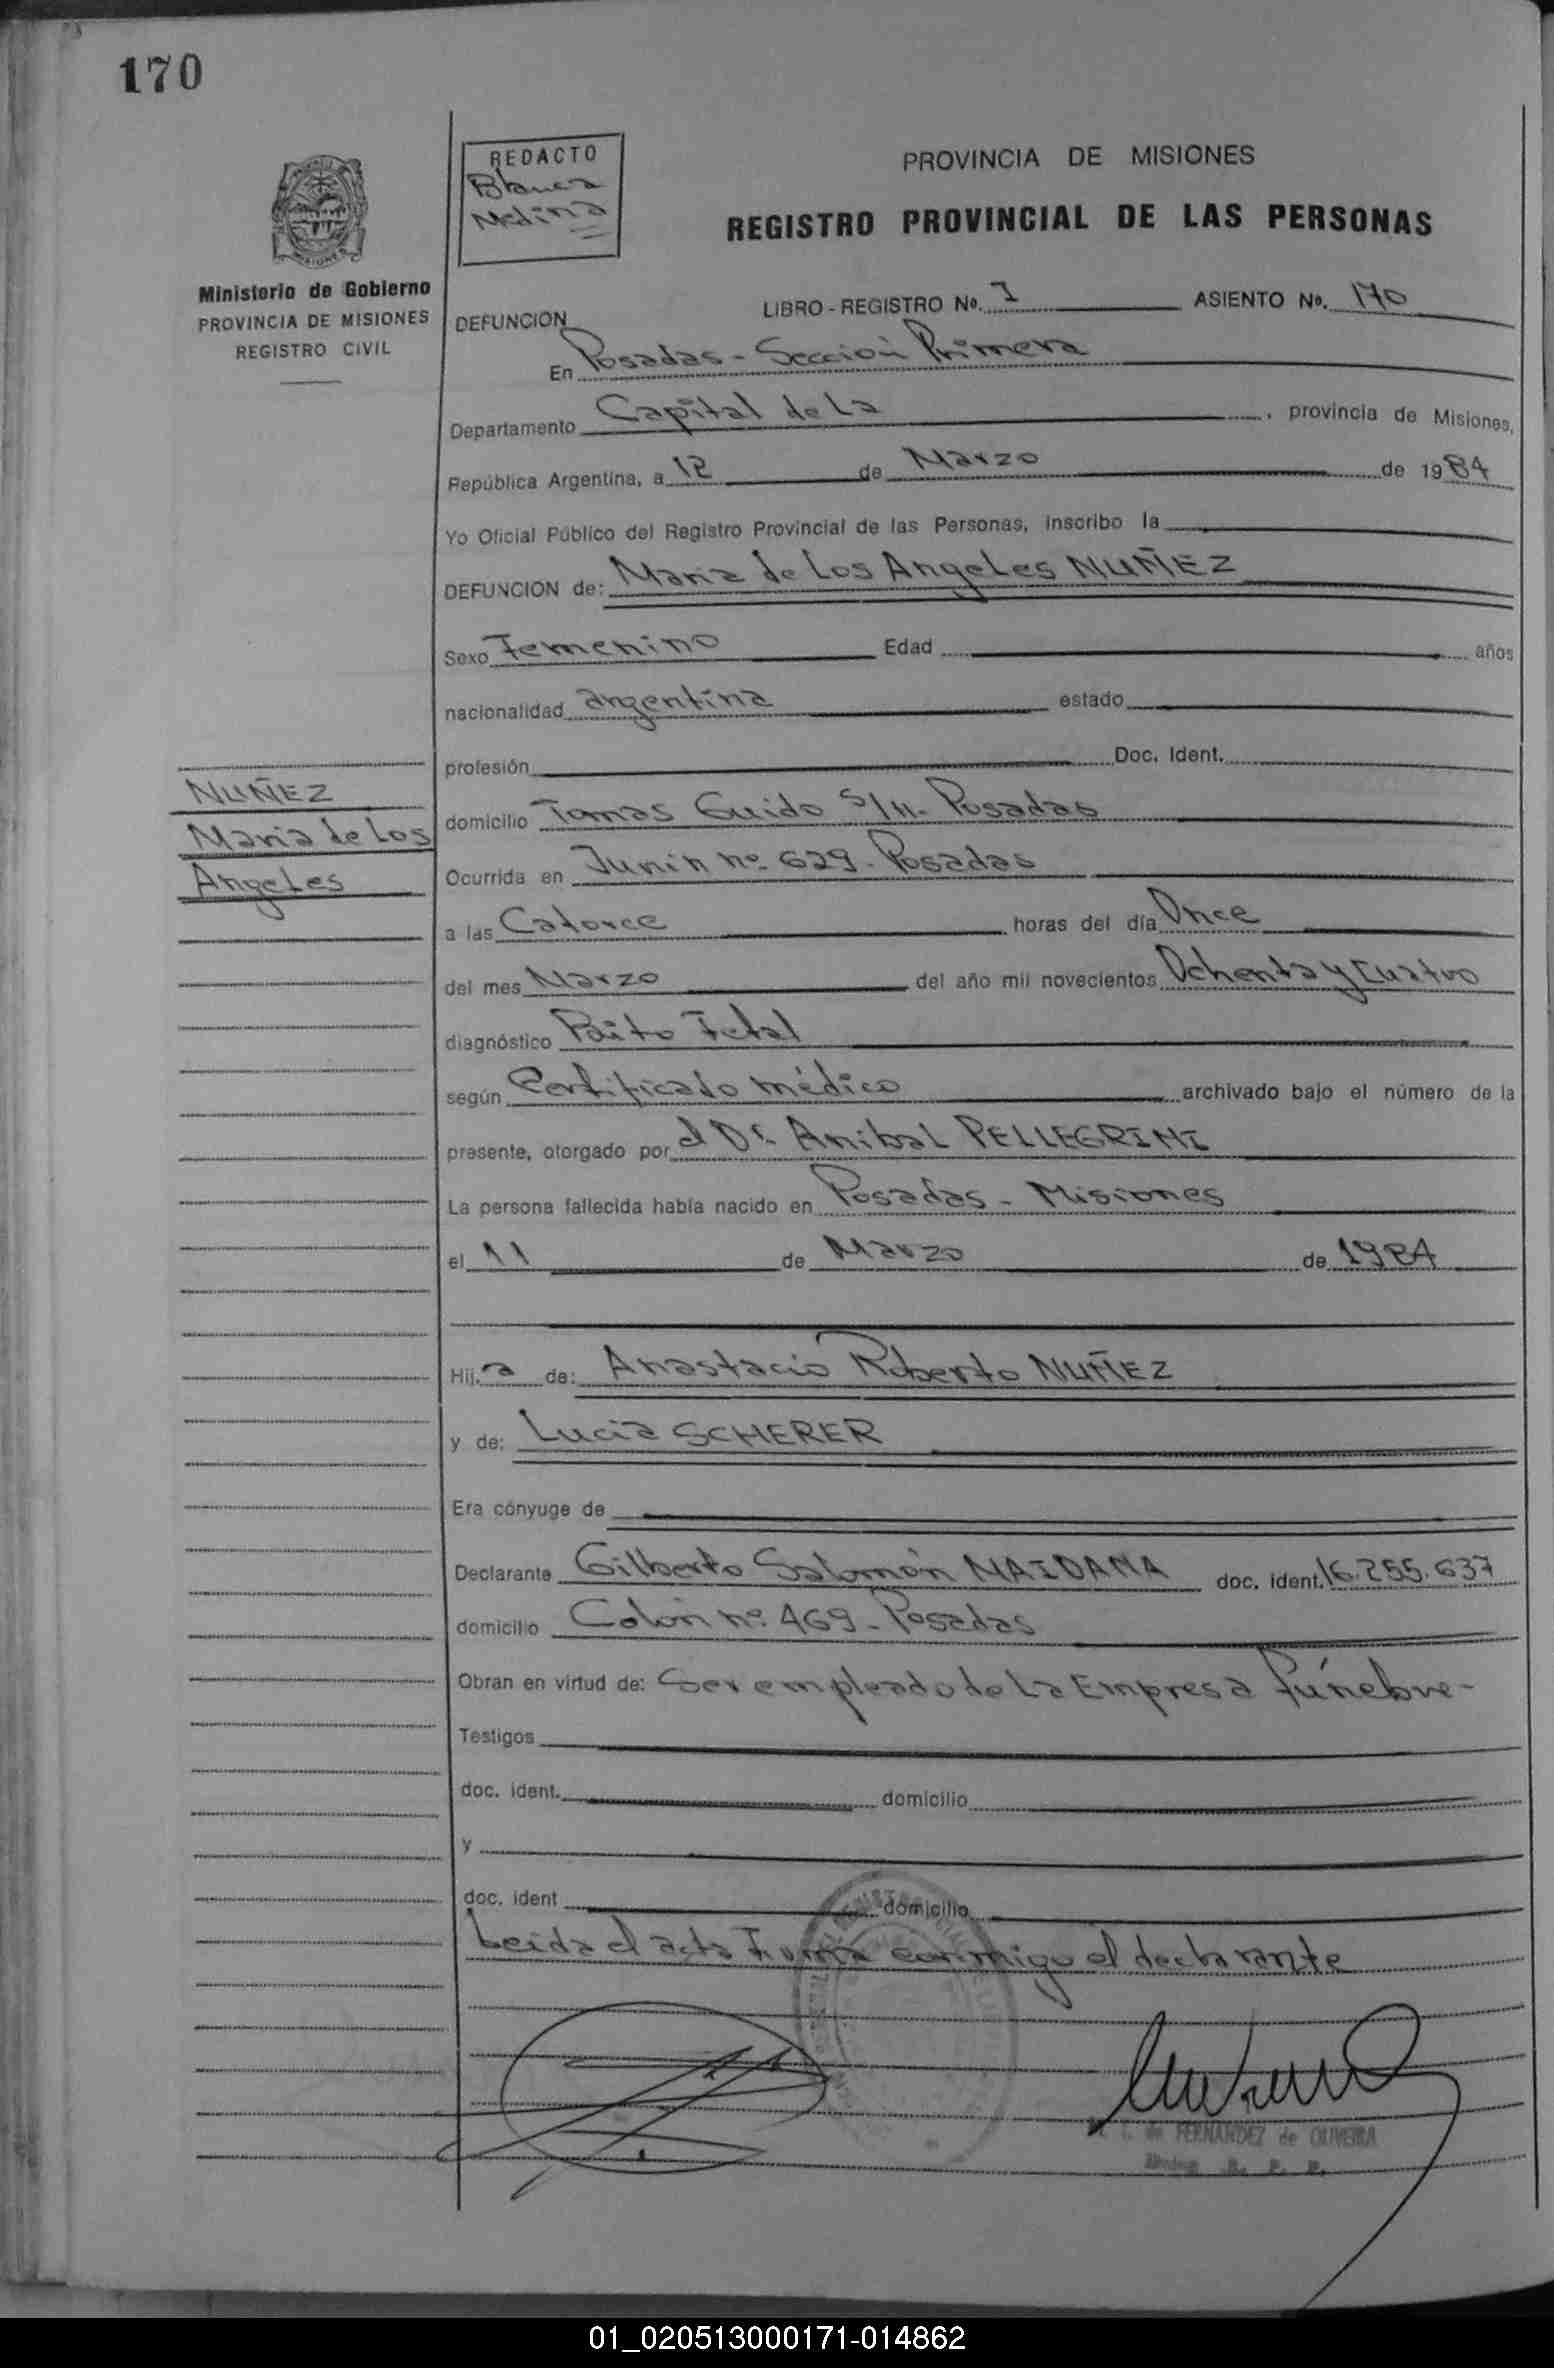 170
REDACTO
Blanca
Molina
PROVINCIA DE MISIONES
REGISTRO PROVINCIAL DE LAS PERSONAS
MISIONES
Ministerio de Gobierno
PROVINCIA DE MISIONES
REGISTRO CIVIL
LIBRO - REGISTRO Nº. 1 ASIENTO Nº. 170
DEFUNCION
En Posadas - Sección Primera
Departamento Capital de La, provincia de Misiones,
República Argentina, a 12 de Marzo de 1984
Yo Oficial Público del Registro Provincial de las Personas, inscribo la
DEFUNCION de: Maria de Los Angeles NUÑEZ
Sexo Femenino Edad años
nacionalidad argentina estado
profesión Doc. Ident.
NUÑEZ
Maria de Los
Angeles
domicilio Tomas Guido S/N. Posadas
Ocurrida en Junin nº 629 - Posadas
a las Catorce horas del día Once
del mes Marzo del año mil novecientos Ochenta y Cuatro
diagnóstico Paito Fetal
según Certificado médico archivado bajo el número de la
presente, otorgado por el Dr. Anibal PELLEGRINI
La persona fallecida había nacido en Posadas - Misiones
el 11 de Marzo de 1984
Hija de: Anastacio Roberto NUÑEZ
y de: Lucia SCHERER
Era cónyuge de
Declarante Gilberto Salomón MAIDANA doc. ident. 16.255.637
domicilio Colón nº 469 - Posadas
Obran en virtud de: Ser empleado de La Empresa fúnebre -
Testigos
doc. ident. domicilio
y
doc. ident domicilio
Leida el acta Firma conmigo el declarante
de FERNANDEZ de OLIVEIRA
R. P. P.
01_020513000171-014862